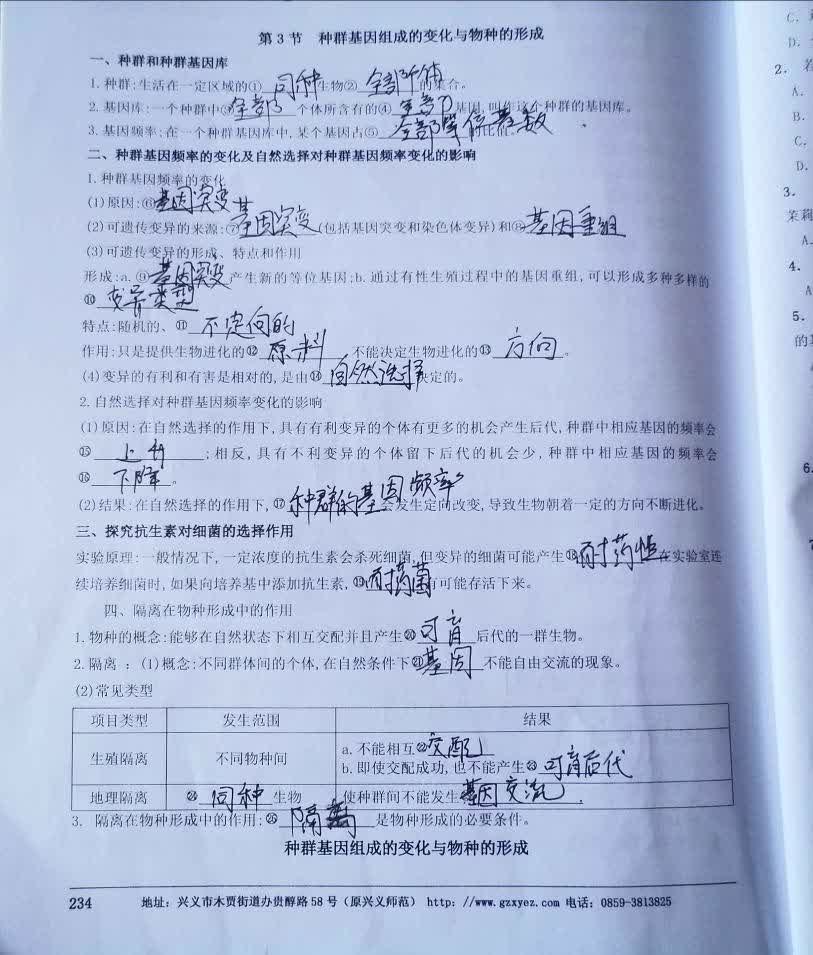 第3节 种群基因组成的变化与物种的形成
一、种群和种群基因库
1.种群:生活在一定区域的①同种生物②全部个体的集合。
2.基因库:一个种群中③全部个体所含有的④全部基因,叫作这个种群的基因库。
3.基因频率:在一个种群基因库中,某个基因占⑤全部等位基因数
二、种群基因频率的变化及自然选择对种群基因频率变化的影响
1.种群基因频率的变化
(1)原因:⑥基因突变
(2)可遗传变异的来源:⑦基因突变(包括基因突变和染色体变异)和⑧基因重组
(3)可遗传变异的形成、特点和作用
形成:a.⑨基因突变产生新的等位基因;b.通过有性生殖过程中的基因重组,可以形成多种多样的
⑩变异类型
特点:随机的、⑪不定向的
作用:只是提供生物进化的⑫原料 不能决定生物进化的⑬方向。
(4)变异的有利和有害是相对的,是由⑭自然选择决定的。
2.自然选择对种群基因频率变化的影响
(1)原因:在自然选择的作用下,具有有利变异的个体有更多的机会产生后代,种群中相应基因的频率会
⑮上升;相反,具有不利变异的个体留下后代的机会少,种群中相应基因的频率会
⑯下降。
(2)结果:在自然选择的作用下,⑰种群的基因频率会发生定向改变,导致生物朝着一定的方向不断进化。
三、探究抗生素对细菌的选择作用
实验原理:一般情况下,一定浓度的抗生素会杀死细菌,但变异的细菌可能产生⑱耐药性在实验室连
续培养细菌时,如果向培养基中添加抗生素,⑲耐药菌有可能存活下来。
四、隔离在物种形成中的作用
1.物种的概念:能够在自然状态下相互交配并且产生⑳可育后代的一群生物。
2.隔离:(1)概念:不同群体间的个体,在自然条件下㉑基因不能自由交流的现象。
(2)常见类型
项目类型 发生范围 结果
生殖隔离 不同物种间 a.不能相互㉒交配
b.即使交配成功,也不能产生㉓可育后代
地理隔离 ㉔同种生物 使种群间不能发生基因交流.
3.隔离在物种形成中的作用:㉕隔离是物种形成的必要条件。
种群基因组成的变化与物种的形成
234 地址:兴义市木贾街道办贵醇路58号(原兴义师范) http://www.gzxyez.com 电话:0859-3813825
C.
D.
2. 若
A.
B.
C.
D.
3.
茉莉
A.
4.
A
5.
的
6.